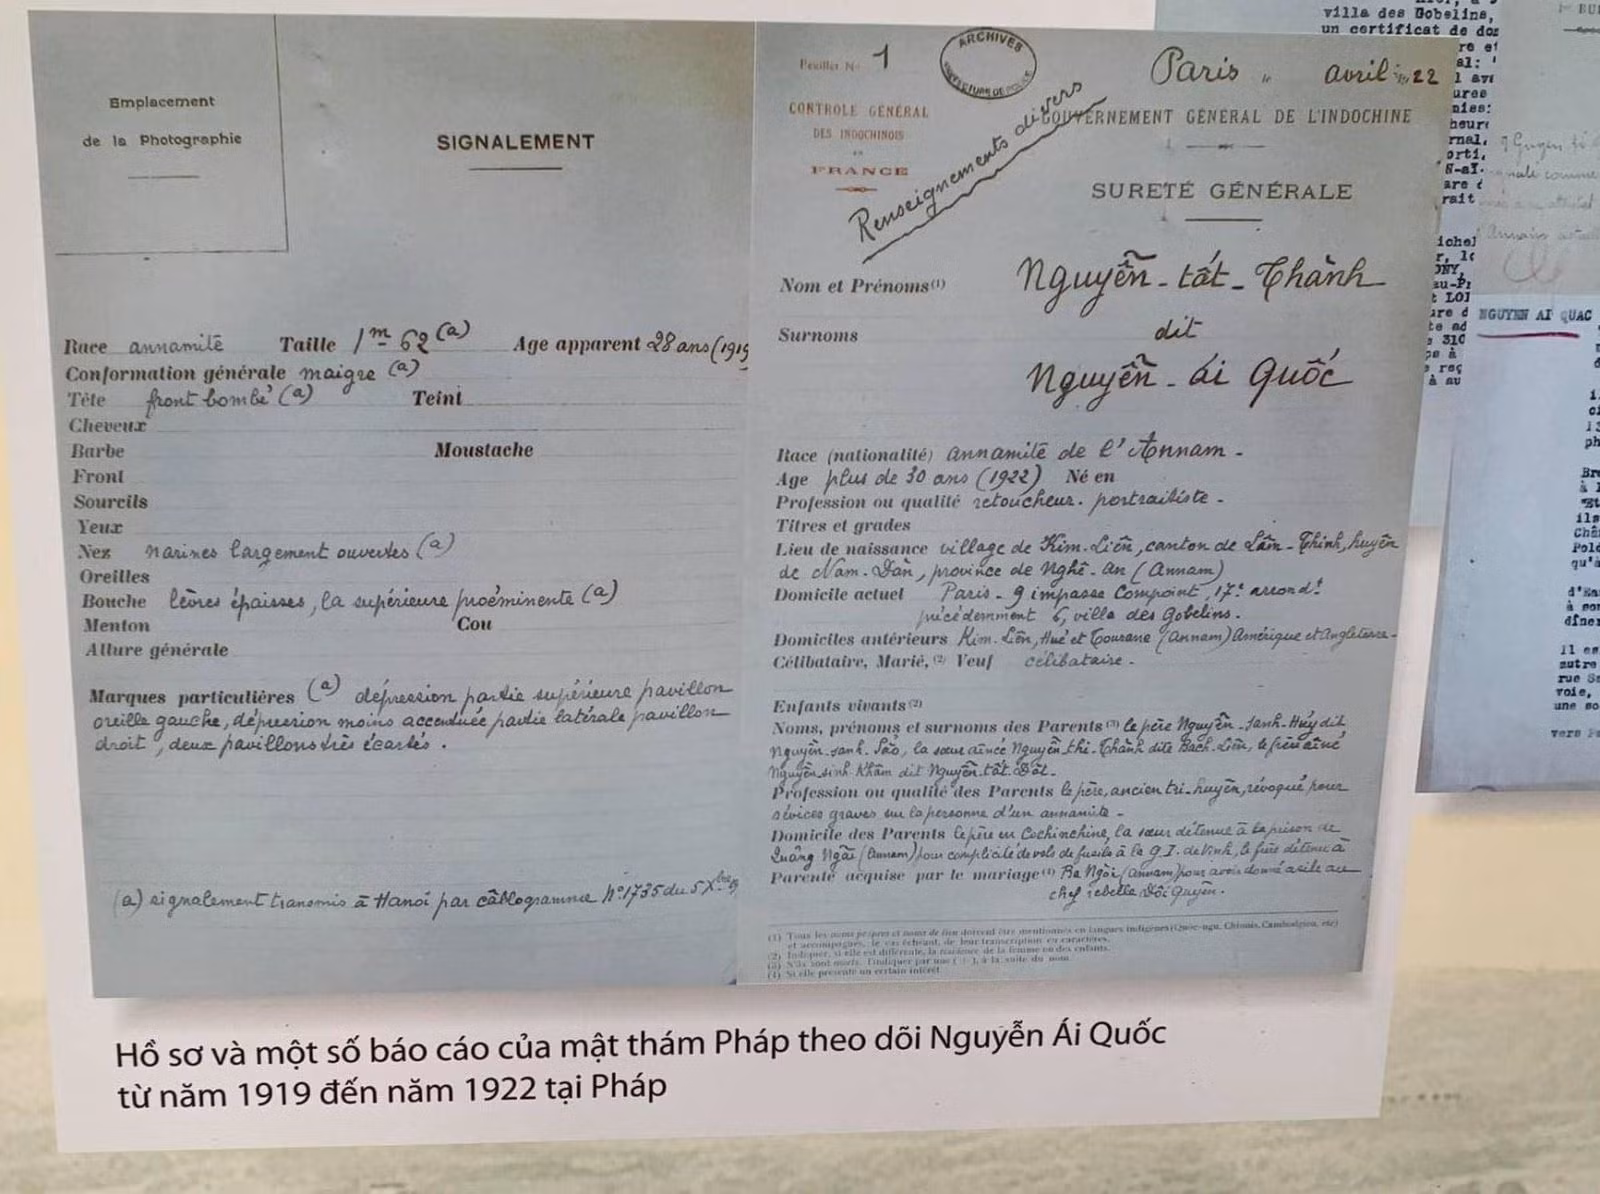 Emplacement
de la Photographie
SIGNALEMENT
Race annamite Taille 1m 62 (a) Age apparent 28 ans (1919
Conformation générale maigre (a)
Tête front bombé (a) Teint
Cheveux
Barbe Moustache
Front
Sourcils
Yeux
Nez narines largement ouvertes (a)
Oreilles
Bouche lèvres épaisses, la supérieure proéminente (a)
Menton Cou
Allure générale
Marques particulières (a) dépression partie supérieure pavillon
oreille gauche, dépression moins accentuée partie latérale pavillon
droit, deux pavillons très écartés.
(a) signalement transmis à Hanoi par câblogramme No 1735 du 5 Xbre 19
Feuillet No 1
ARCHIVES
PREFECTURE DE POLICE
Paris, le avril 1922
CONTROLE GÉNÉRAL
DES INDOCHINOIS
EN
FRANCE
Renseignements divers
GOUVERNEMENT GÉNÉRAL DE L'INDOCHINE
SURETÉ GÉNÉRALE
Nom et Prénoms (1) Nguyễn-tất-Thành
Surnoms dit
Nguyễn-ái Quốc
Race (nationalité) annamite de l'Annam -
Age plus de 30 ans (1922) Né en
Profession ou qualité retoucheur. portraitiste -
Titres et grades
Lieu de naissance village de Kim-Liên, canton de Lâm-Thinh, huyên
de Nam-Dàn, province de Nghê-an (Annam)
Domicile actuel Paris - 9 impasse Compoint, 17e arrondt
précédemment 6, villa des Gobelins.
Domiciles antérieurs Kim-Liên, Hué et Tourane (Annam) Amérique et Angleterre-
Célibataire, Marié, (2) Veuf célibataire.
Enfants vivants (2)
Noms, prénoms et surnoms des Parents (3) le père Nguyễn-sanh-Húy dit
Nguyễn-sanh-Sắc, la sœur aînée Nguyễn-thi-Thành dite Bach-Liên, le frère aîné
Nguyễn-sinh-Khâm dit Nguyễn-tất-Đạt.
Profession ou qualité des Parents le père, ancien tri-huyên, révoqué pour
sévices graves sur la personne d'un annamite -
Domicile des Parents le père en Cochinchine, la sœur détenue à la prison de
Quảng Ngãi (Annam) pour complicité de vols de fusils à la G.I. de Vinh, le frère détenu à
Parenté acquise par le mariage (4) Ba Ngòi (Annam) pour avoir donné asile au
chef rebelle Đôi Quyên.
(1) Tous les noms propres et noms de lieu doivent être mentionnés en langues indigènes (Quôc-ngu, Chinois, Cambodgien, etc)
et accompagnés, le cas échéant, de leur transcription en caractères.
(2) Indiquer, si elle est différente, la résidence de la femme ou des enfants.
(3) S'ils sont morts, l'indiquer par une (+), à la suite du nom.
(4) Si elle présente un certain intérêt
villa des Gobelins,
un certificat de
NGUYEN AI QUAC
Hồ sơ và một số báo cáo của mật thám Pháp theo dõi Nguyễn Ái Quốc
từ năm 1919 đến năm 1922 tại Pháp